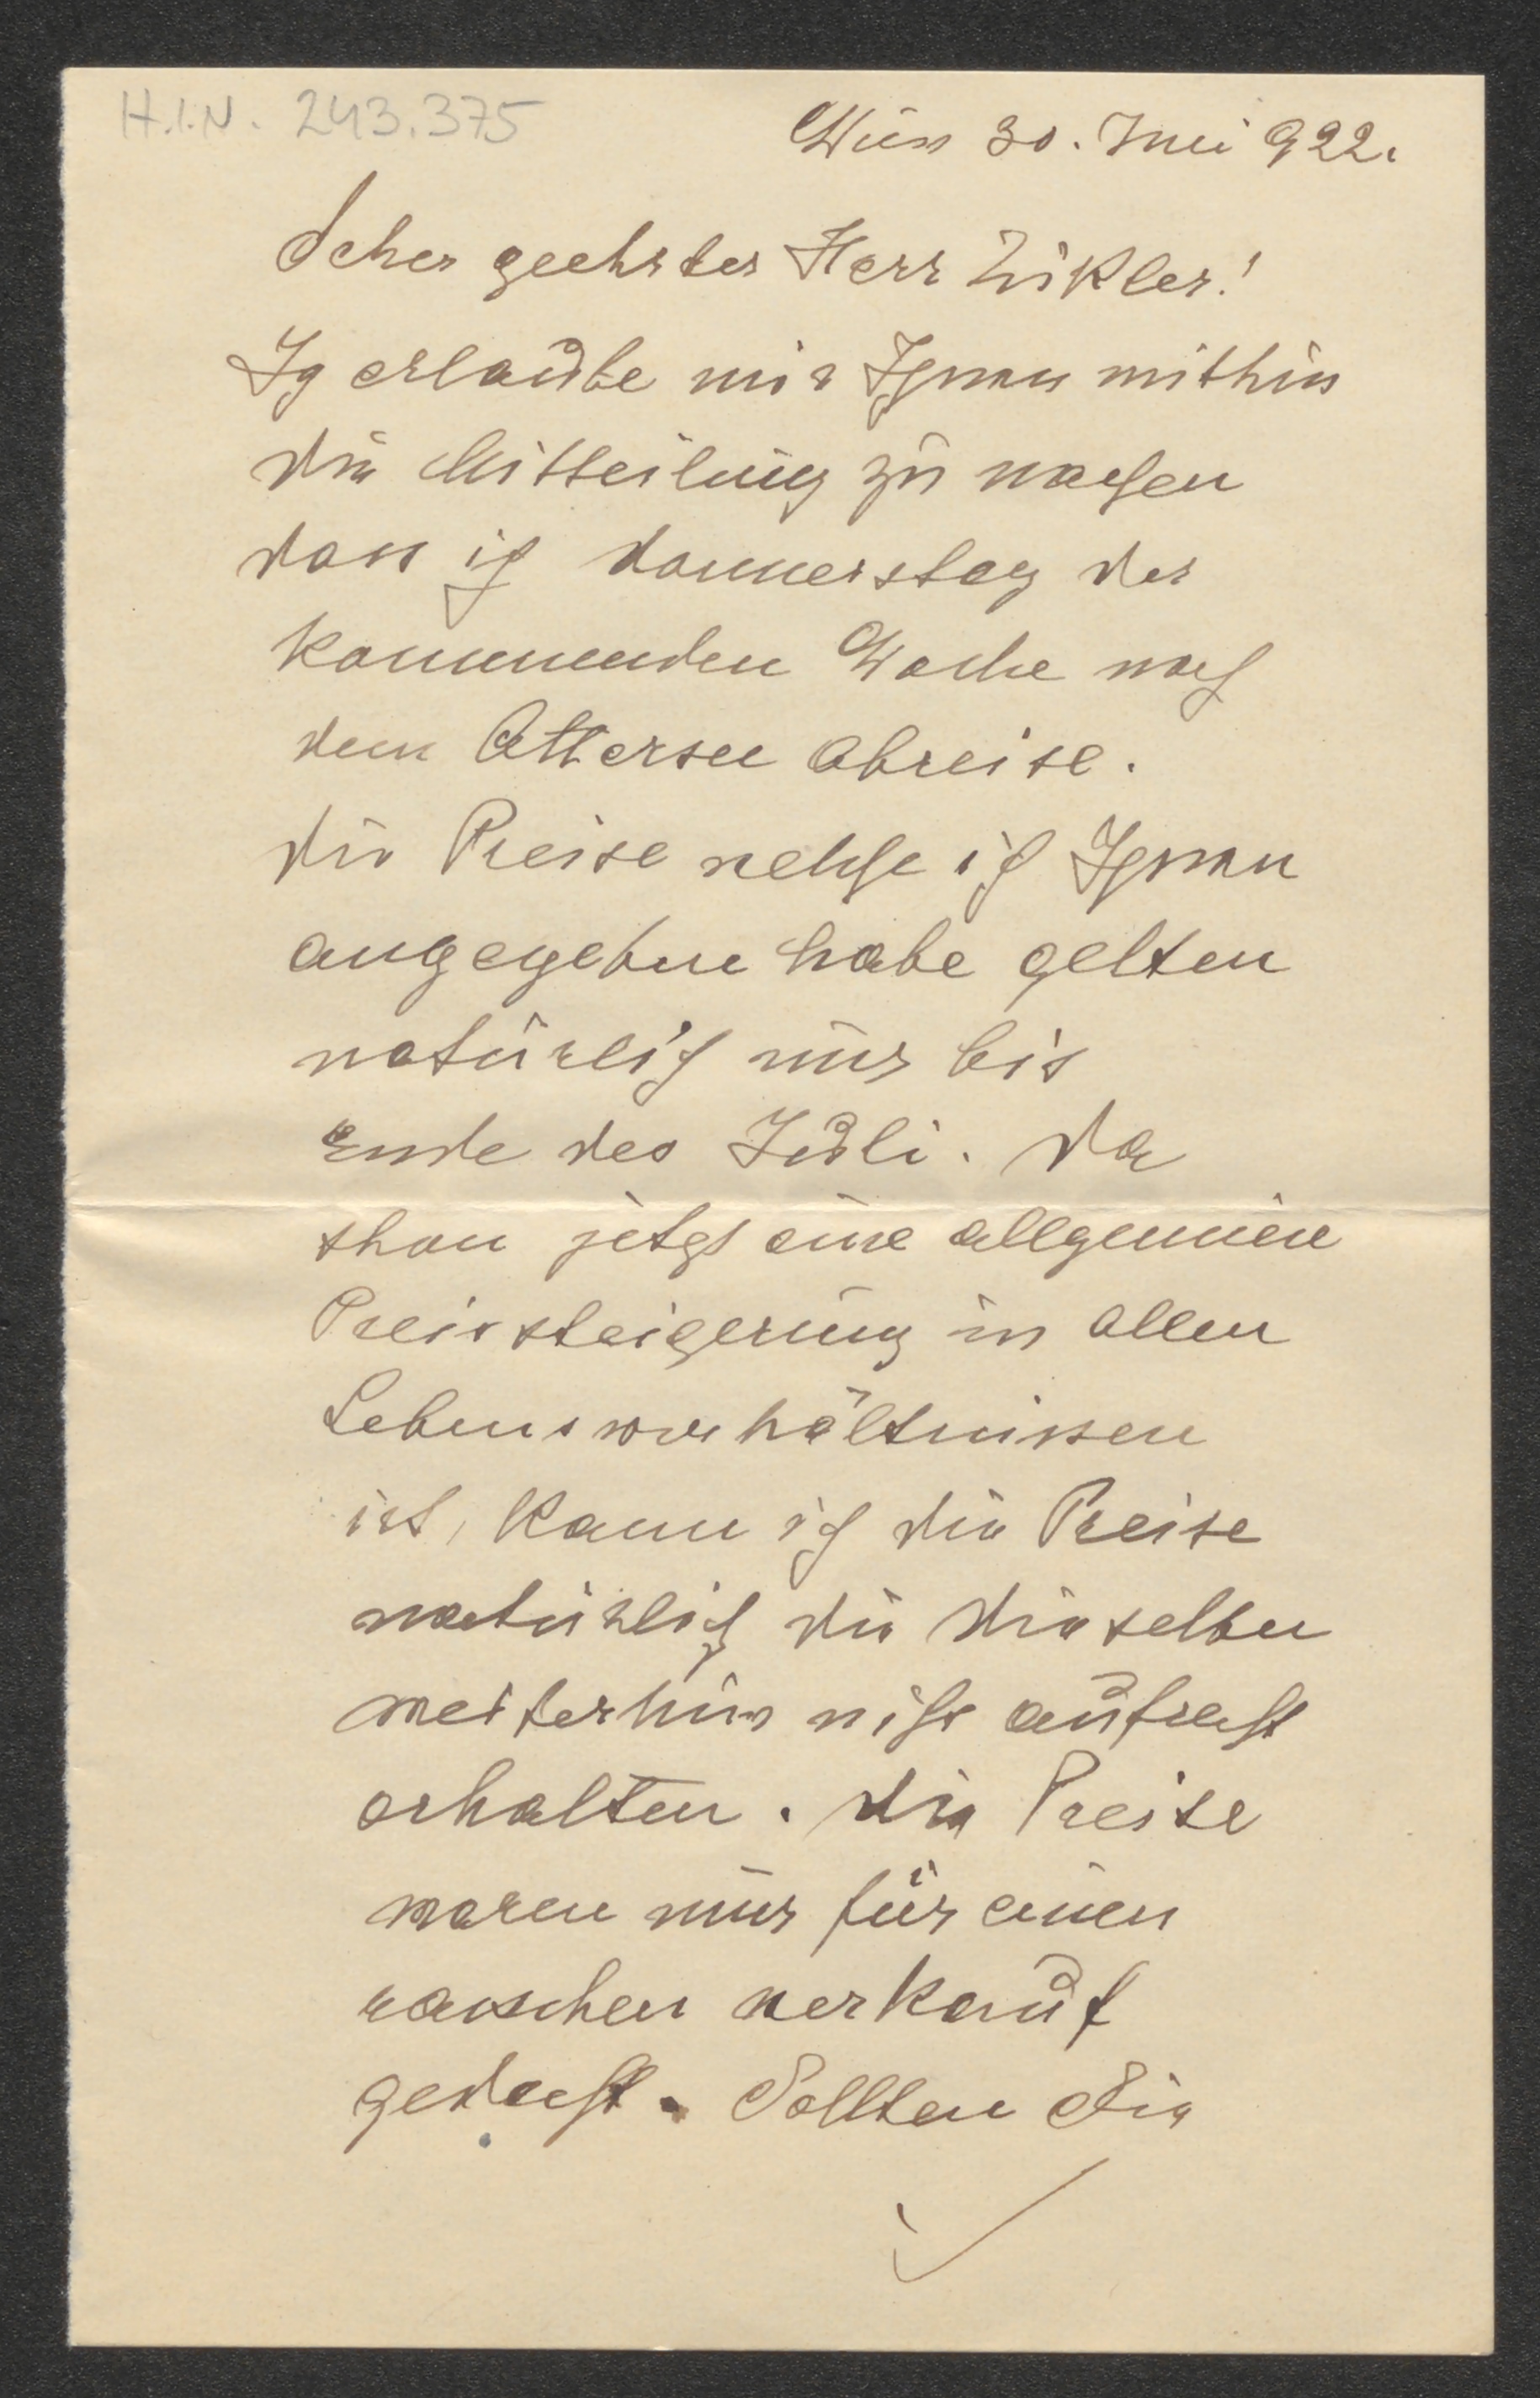 H.I.N. 243.375
Wien 30. Juni 922.
Seher geehrter Herr Zikler!
Ich erlaube mir Ihnen mithin
die Mitteilung zu machen
dass ich donnerstag der
kommenden Woche nach
dem Attersee abreise.
die Preise welche ich Ihnen
angegeben habe gelten
natürlich nur bis
ende des Juli. da
schon jetzt eine allgemeine
Preissteigerung in allen
Lebensverhältnissen
ist, kann ich die Preise
natürlich die dieselben
weiterhin nicht aufrecht
erhalten. die Preise
waren nur für einen
raschen verkauf
gedacht. Sollten Sie